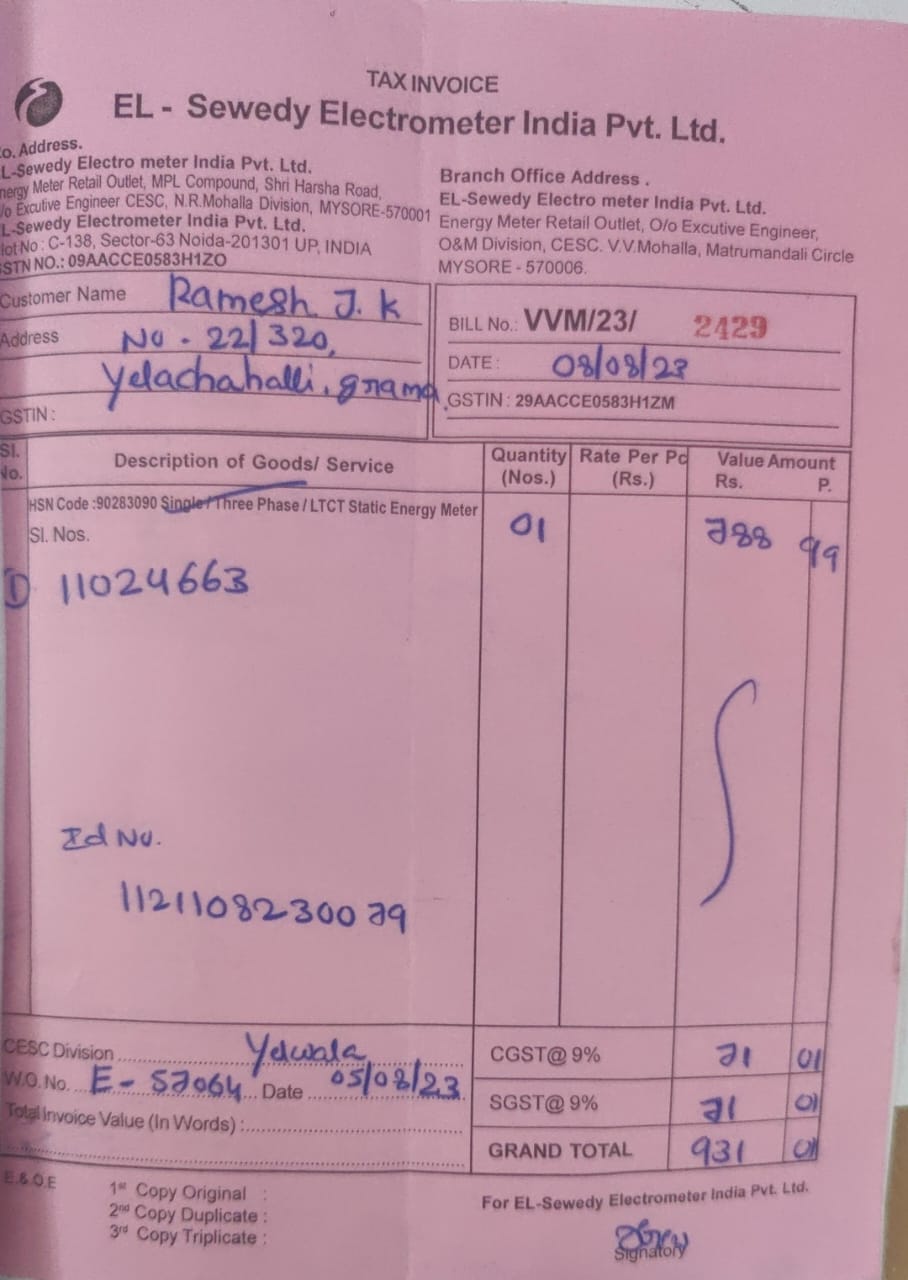 TAX INVOICE
EL - Sewedy Electrometer India Pvt. Ltd.
o. Address.
L-Sewedy Electro meter India Pvt. Ltd.
nergy Meter Retail Outlet, MPL Compound, Shri Harsha Road,
/o Excutive Engineer CESC, N.R.Mohalla Division, MYSORE-570001
L-Sewedy Electrometer India Pvt. Ltd.
lot No : C-138, Sector-63 Noida-201301 UP, INDIA
STN NO.: 09AACCE0583H1ZO
Branch Office Address .
EL-Sewedy Electro meter India Pvt. Ltd.
Energy Meter Retail Outlet, O/o Excutive Engineer,
O&M Division, CESC. V.V.Mohalla, Matrumandali Circle
MYSORE - 570006.
Customer Name Ramesh J. K
Address No - 22/320,
Yelachahalli, grama
GSTIN :
BILL No.: VVM/23/ 2429
DATE : 08/08/23
GSTIN : 29AACCE0583H1ZM
Sl. No. Description of Goods/ Service Quantity (Nos.) Rate Per Pc (Rs.) Value Amount Rs. P.
HSN Code :90283090 Single / Three Phase / LTCT Static Energy Meter 01 788 99
Sl. Nos.
1) 11024663
Id No.
11211082300 79
CESC Division Yelwala CGST@ 9% 71 01
W.O. No. E - 57064 Date 05/08/23 SGST@ 9% 71 01
Total Invoice Value (In Words) :
GRAND TOTAL 931 01
E.& O.E
1st Copy Original :
2nd Copy Duplicate :
3rd Copy Triplicate :
For EL-Sewedy Electrometer India Pvt. Ltd.
Signatory